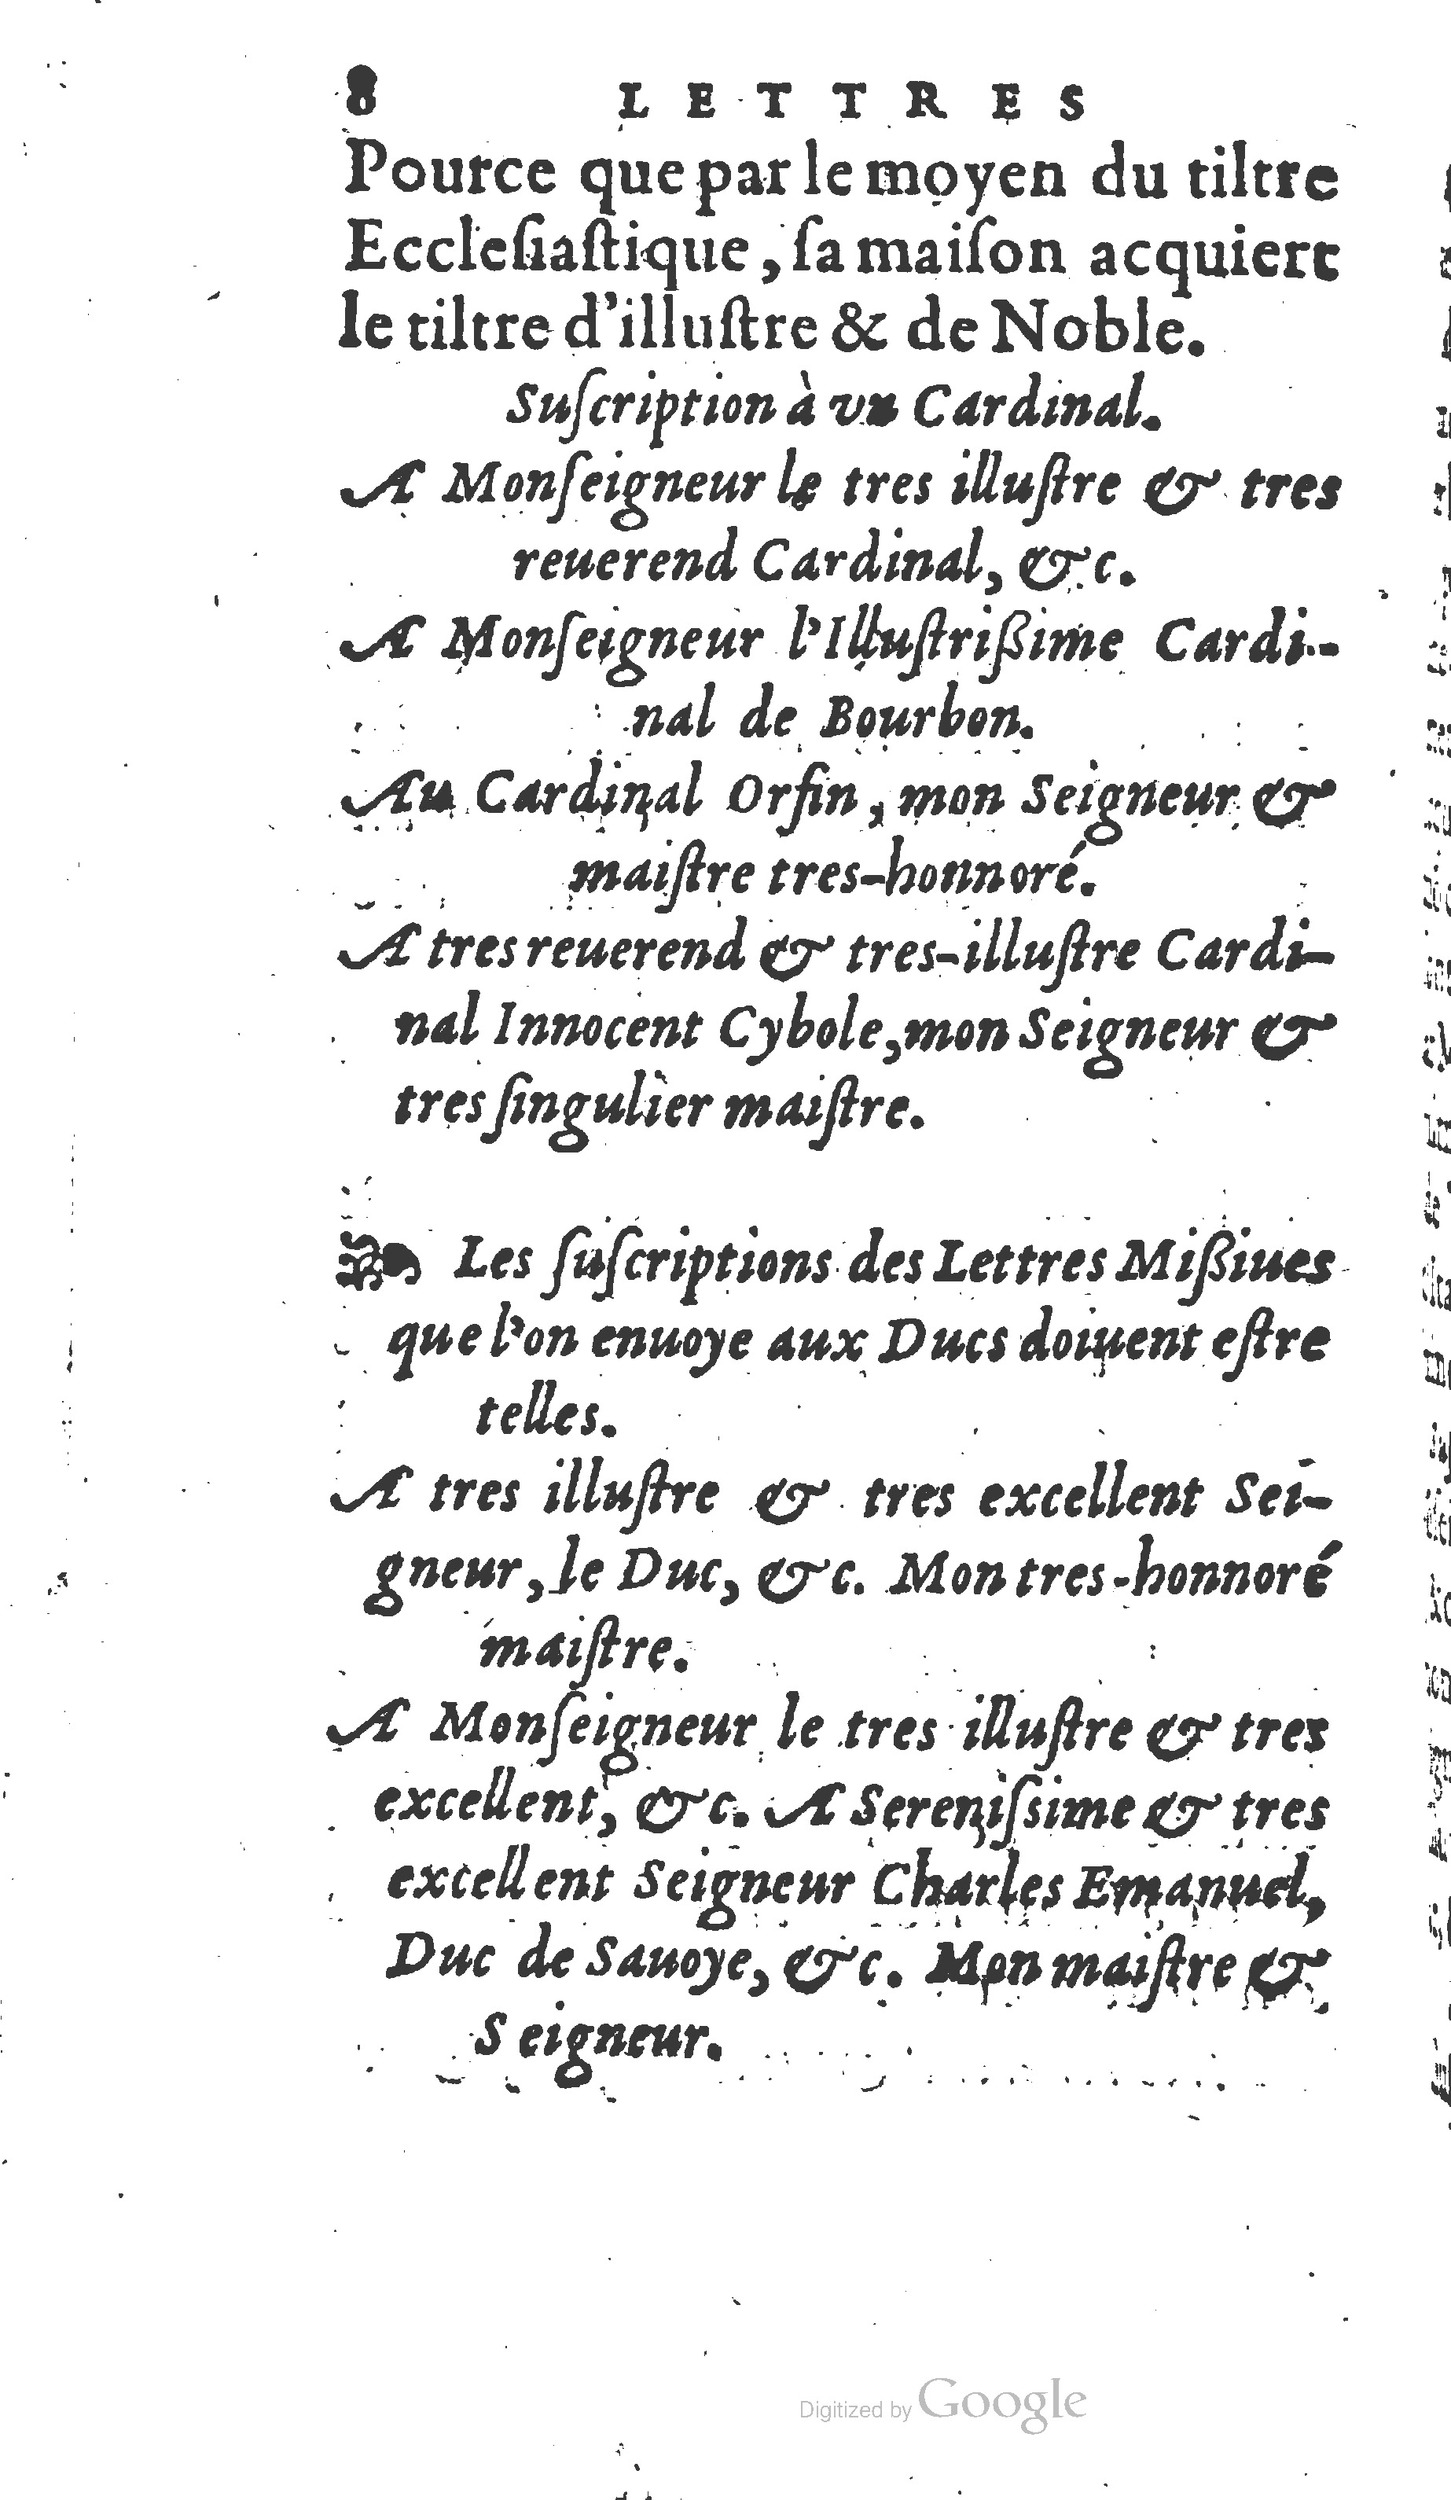 8 LETTRES
Pource que par le moyen du tiltre
Eccleſiaſtique, ſa maiſon acquiert
le tiltre d'illuſtre & de Noble.
Suſcription à vn Cardinal.
A Monſeigneur le tres illuſtre & tres
reuerend Cardinal, &c.
A Monſeigneur l'Illuſtrißime Cardi-
nal de Bourbon.
Au Cardinal Orſin, mon Seigneur &
maiſtre tres-honnoré.
A tres reuerend & tres-illuſtre Cardi-
nal Innocent Cybole, mon Seigneur &
tres ſingulier maiſtre.
❧ Les ſuſcriptions des Lettres Mißiues
que l'on enuoye aux Ducs doiuent eſtre
telles.
A tres illuſtre & tres excellent Sei-
gneur, le Duc, &c. Mon tres-honnoré
maiſtre.
A Monſeigneur le tres illuſtre & tres
excellent, &c. A Sereniſsime & tres
excellent Seigneur Charles Emanuel,
Duc de Sauoye, &c. Mon maiſtre &
Seigneur.
Digitized by Google